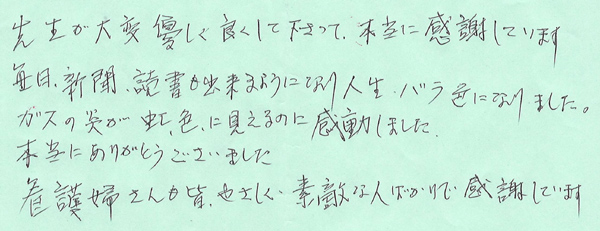 先生が大変優しく良くして下さって、本当に感謝しています
毎日、新聞、読書が出来るようになり人生、バラ色になりました。
ガスの炎が虹色に見えるのに感動しました。
本当にありがとうございました
看護婦さんも皆、やさしく、素敵な人ばかりで感謝しています